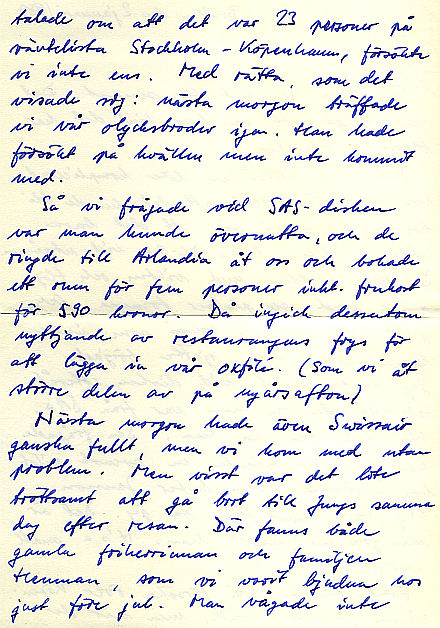 talade om att det var 23 personer på
väntelista Stockholm - Köpenhamn, försökte
vi inte ens. Med rätta, som det
visade sig: nästa morgon träffade
vi vår olycksbroder igen. Han hade
försökt på kvällen men inte kommit
med.
Så vi frågade vid SAS-disken
var man kunde övernatta, och de
ringde till Arlandia åt oss och bokade
ett rum för fem personer inkl. frukost
för 590 kronor. Då ingick dessutom
nyttjande av restaurangens frys för
att lägga in vår oxfilé. (Som vi åt
större delen av på nyårsafton)
Nästa morgon hade även Swissair
ganska fullt, men vi kom med utan
problem. Men visst var det lite
tröttsamt att gå bort till Jungs samma
dag efter resan. Där fanns både
gamla friherrinnan och familjen
Henman, som vi varit bjudna hos
just före jul. Man vågade inte